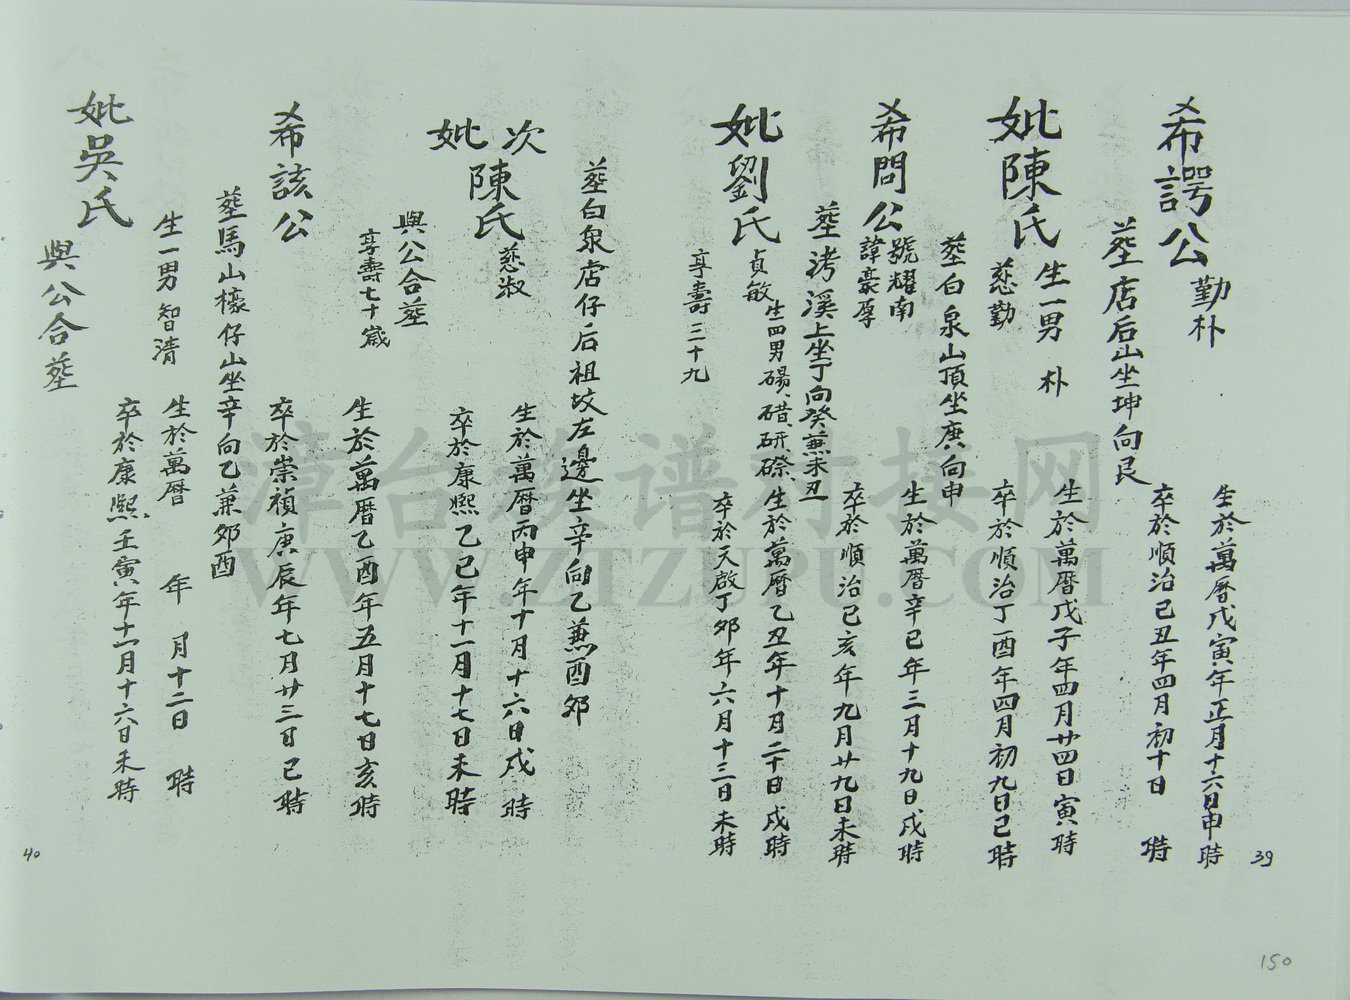 希諤公 勤朴
生於萬曆戊寅年正月十六日申時
卒於順治己丑年四月初十日 時
塟店后山坐坤向艮
妣陳氏 慈勤
生一男 朴
生於萬曆戊子年四月廿四日寅時
卒於順治丁酉年四月初九日巳時
塟白泉山頂坐庚向申
希問公 號耀南 諱豪厚
生於萬曆辛巳年三月十九日戌時
卒於順治己亥年九月廿九日未時
塟 溪上坐丁向癸兼未丑
妣劉氏 貞敏
生四男 碭、碏、研、磜
生於萬曆乙丑年十月二十日戌時
享壽三十九
卒於天啟丁卯年六月十三日未時
塟白泉店仔后祖坟左邊坐辛向乙兼酉卯
次妣陳氏 慈淑
生於萬曆丙申年十月十六日戌時
卒於康熙乙巳年十一月十七日未時
與公合塟
享壽七十歲
希該公
生於萬曆乙酉年五月十七日亥時
卒於崇禎庚辰年七月廿三日巳時
塟馬山檺仔山坐辛向乙兼卯酉
妣吳氏
生一男 智清
生於萬曆 年 月十二日 時
卒於康熙壬寅年十一月十六日未時
與公合塟
39
40
150
漳台族谱对接网
WWW.ZTZUPU.COM